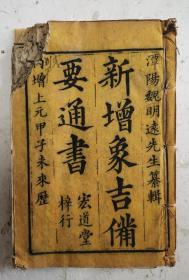 潭陽魏明遠先生纂輯
新增象吉備
要通書
宏道堂
梓行
增上元甲子未來歷